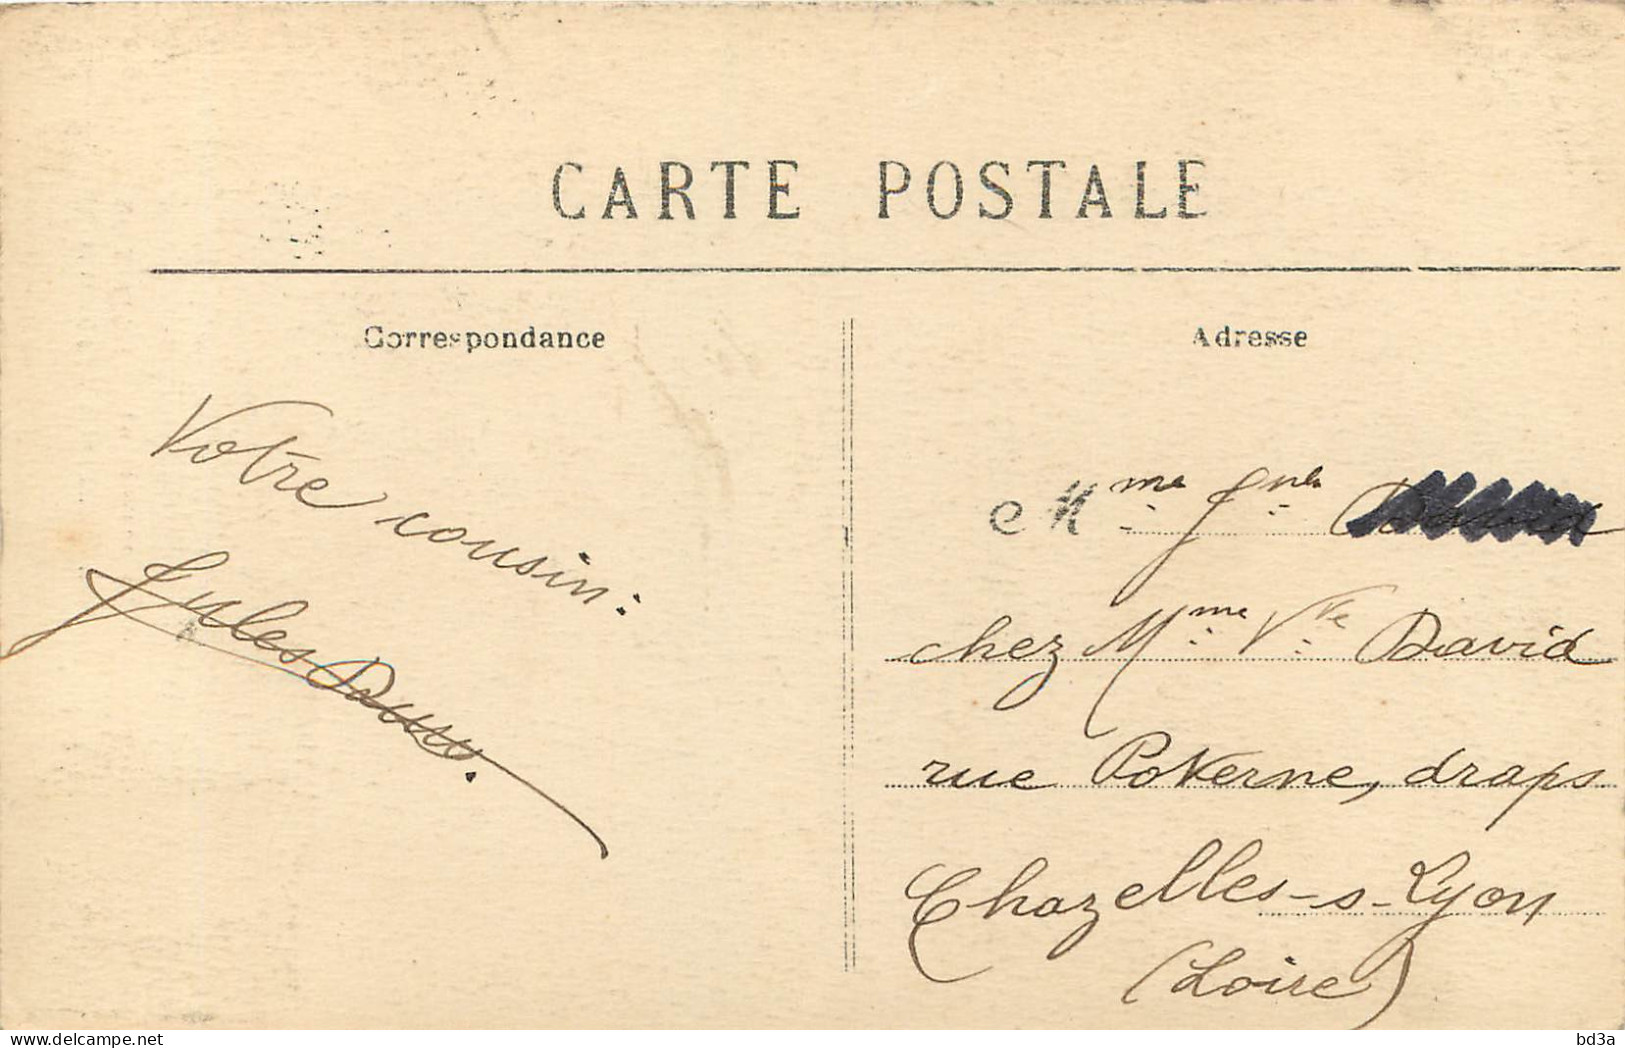 CARTE POSTALE
Correspondance
Adresse
Votre cousin:
Jules
Mme
chez Mme Vve David
rue Poterne, draps
Chazelles-s-Lyon
(Loire)
delcampe.net
bd3a